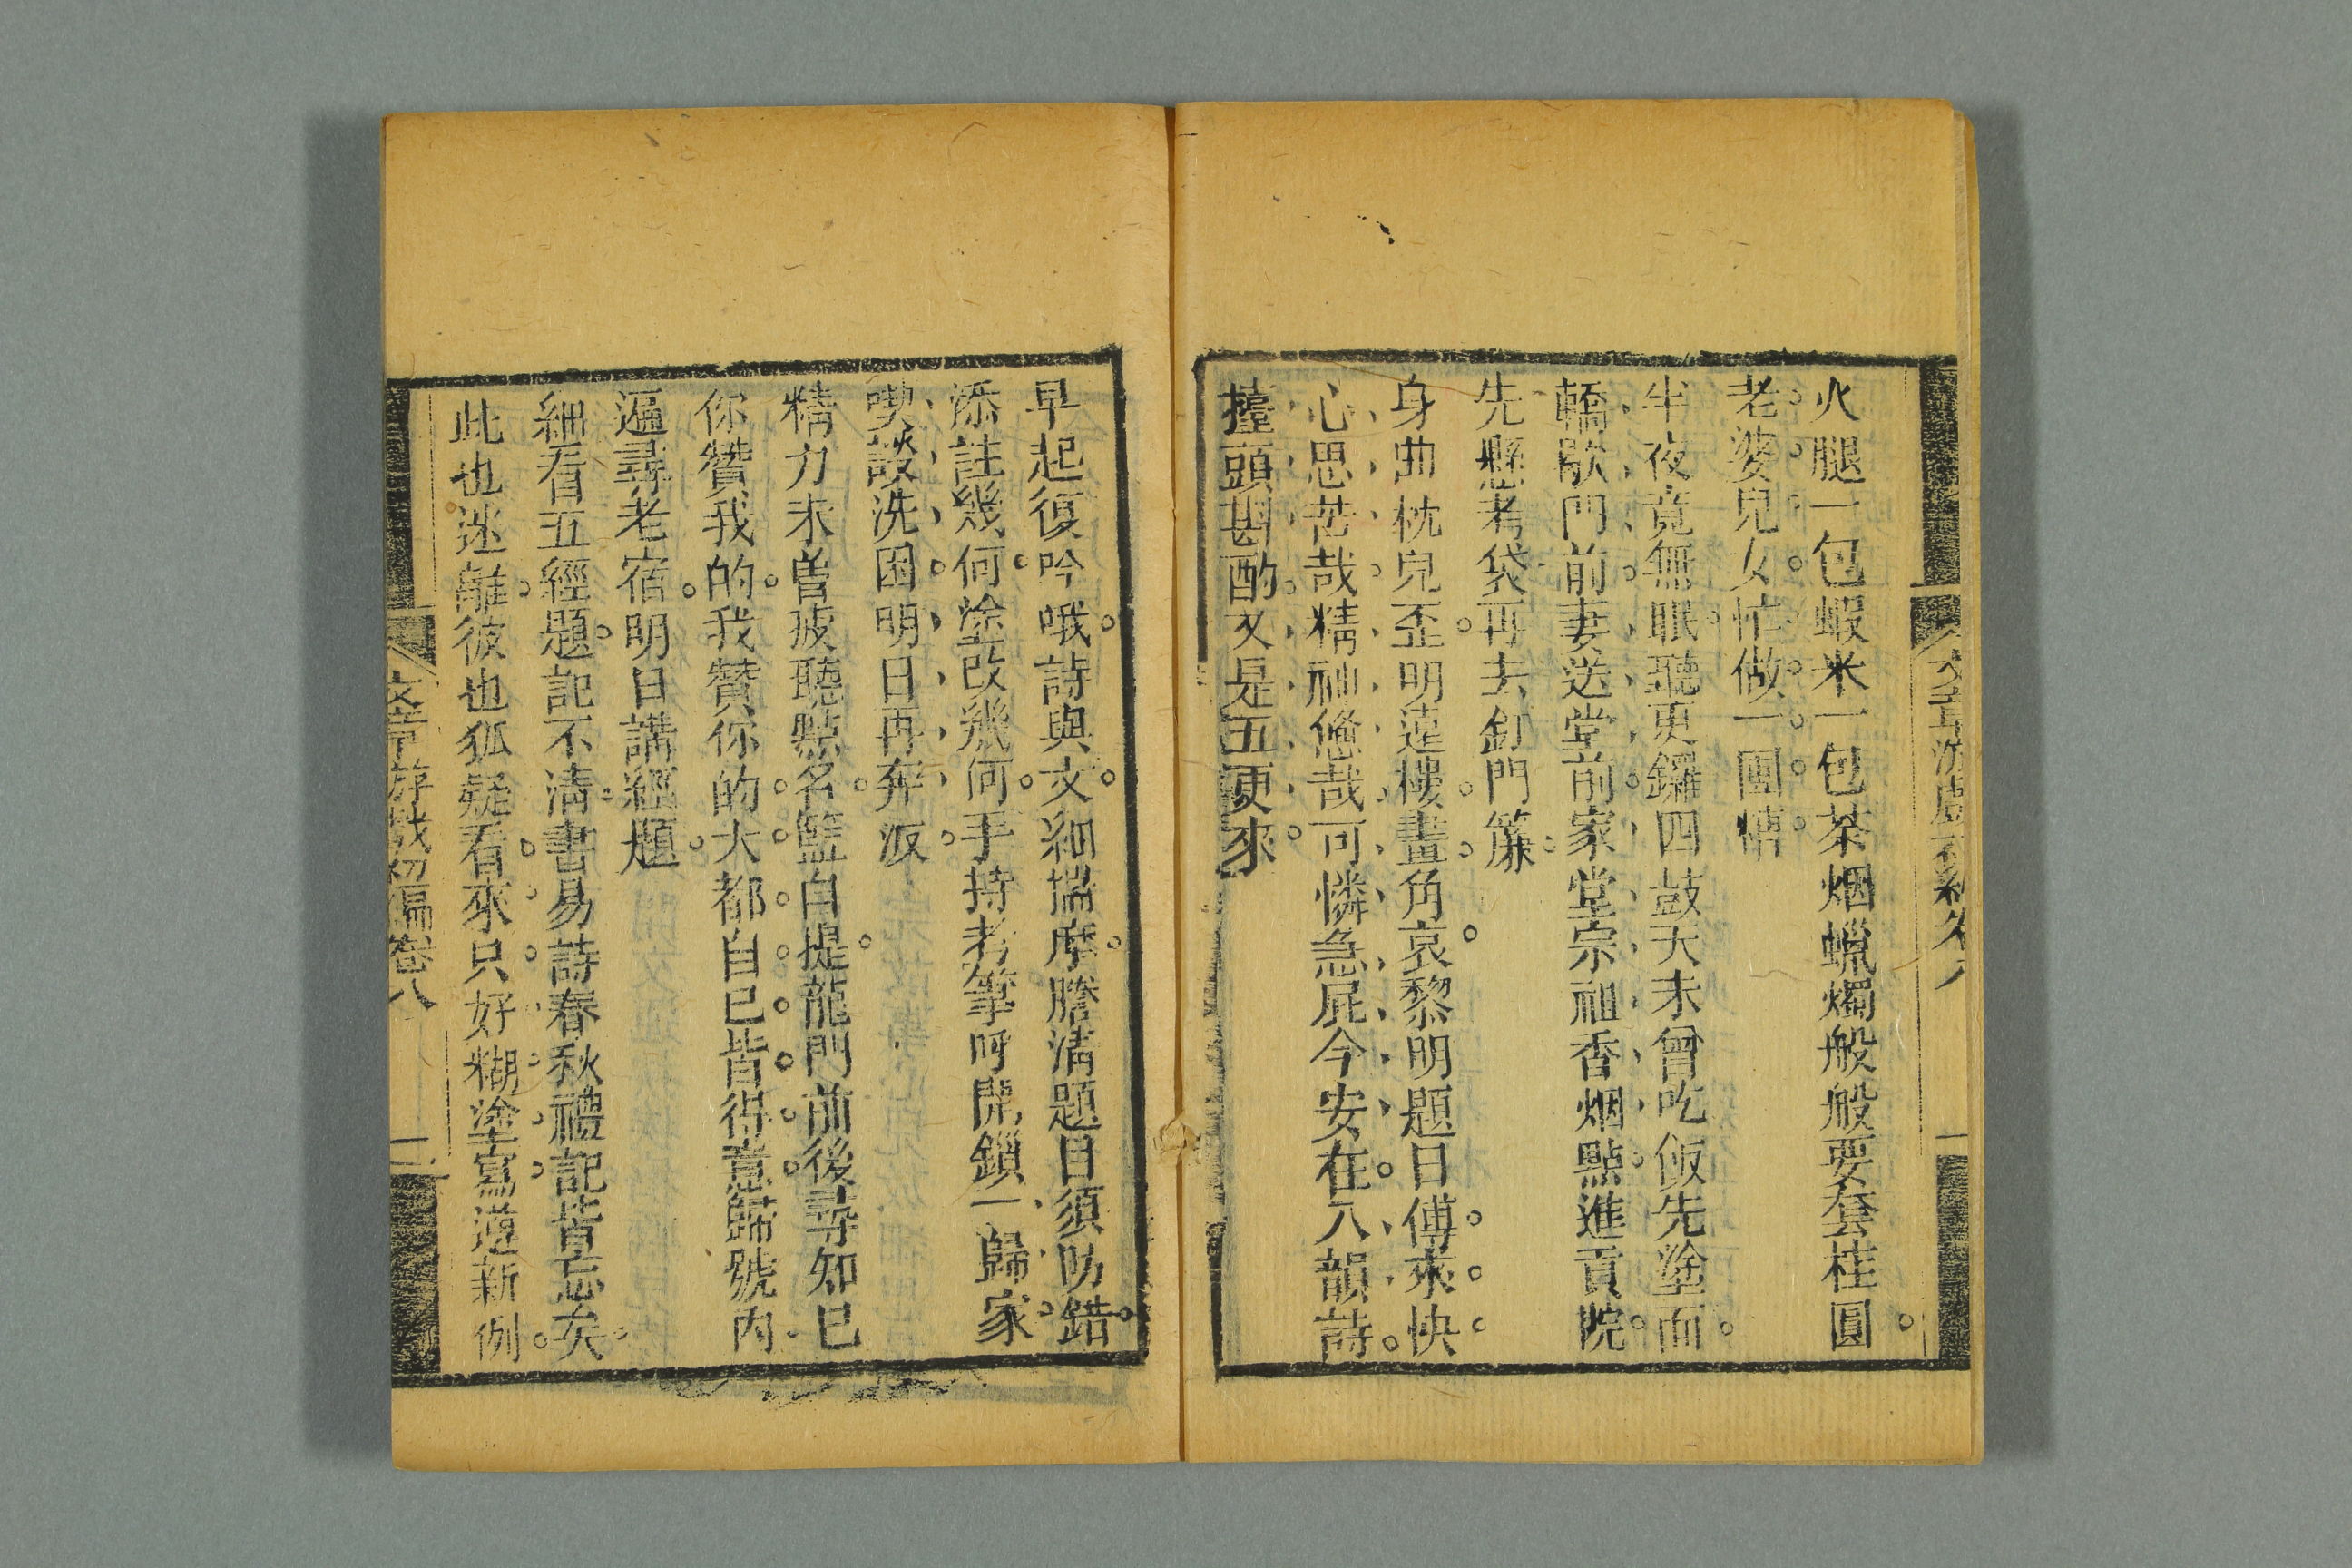 火腿一包蝦米一包茶烟蠟燭般般要套桂圓
老婆兒女忙做一團糟
半夜竟無眠聽更鑼四鼓天未曾吃飯先塗面
轎歇門前妻送堂前家堂宗祖香烟點進貢院
先懸考袋再去釘門簾
身曲枕兒歪明遠樓畫角哀黎明題目傳來快
心思茫哉精神倦哉可憐急屁今安在八韻詩
擡頭斟酌又是五更來
早起復吟哦詩與文細揣摩謄清題目須防錯
添註幾何塗改幾何手持考筆呼開鎖一歸家
喫談洗困明日再奔波
精力未曾疲聽點名籃自提龍門前後尋知已
你贊我的我贊你的大都自已皆得意歸號內
遍尋老宿明日講經題
細看五經題記不清書易詩春秋禮記皆忘矣
此也迷離彼也狐疑看來只好糊塗寫遵新例
文章游戲初編卷八